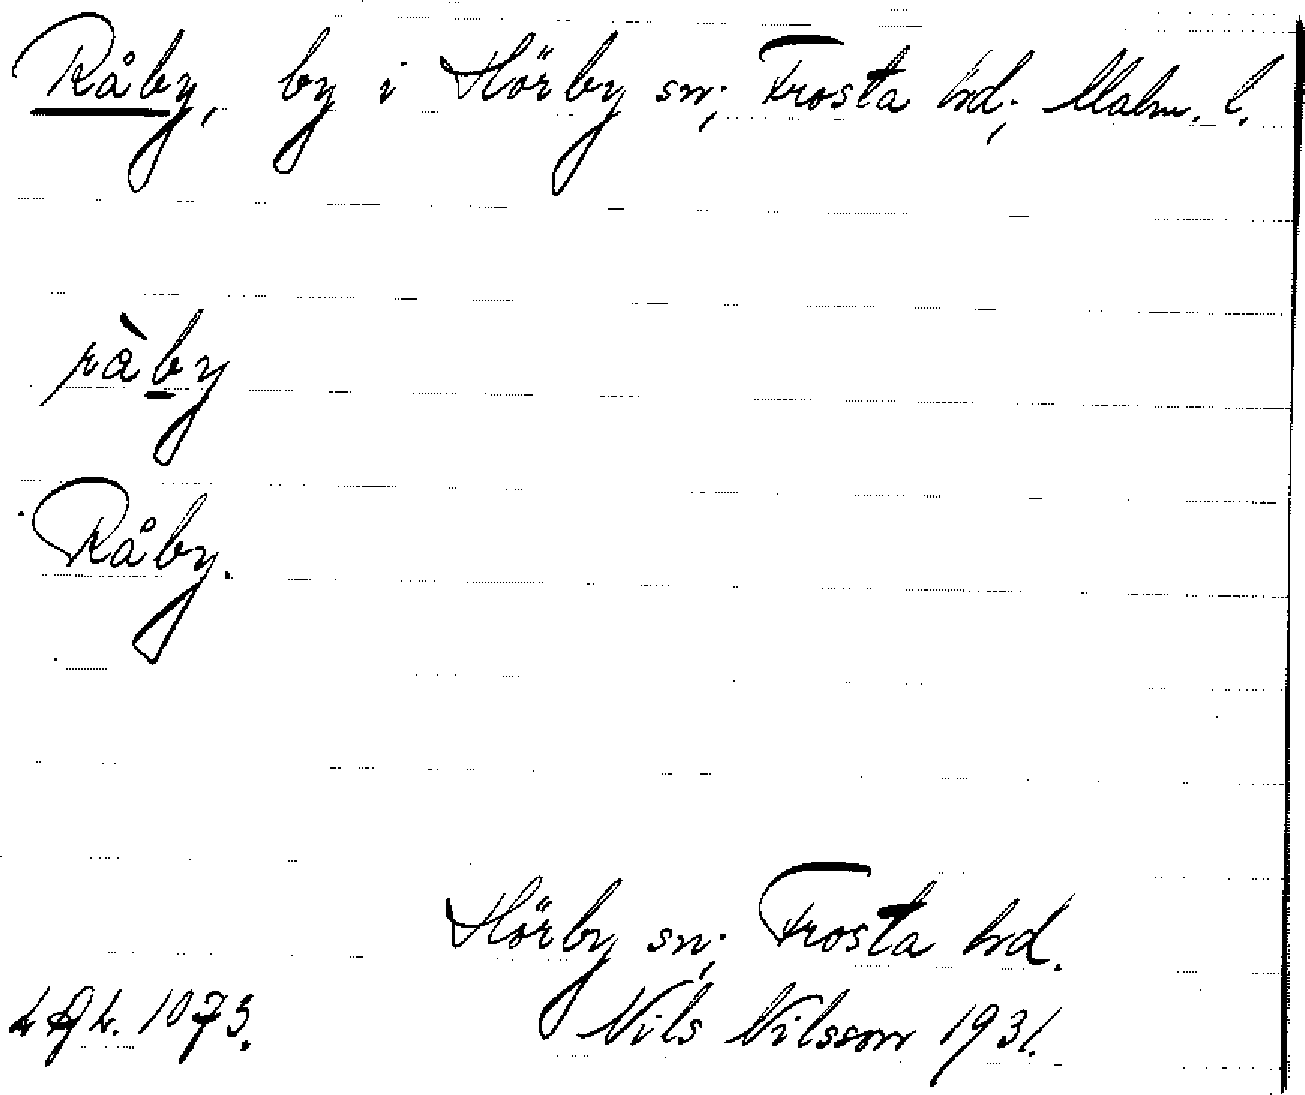 Råby, by i Hörby sn; Frosta hd; Malm. l.
ràby
Råby.
Hörby sn; Frosta hd.
Nils Nilsson 1931.
1073.